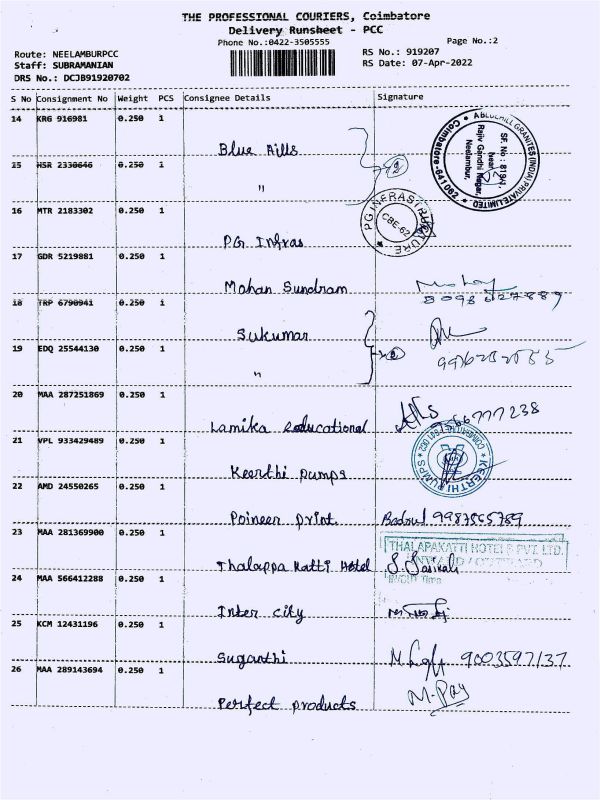 THE PROFESSIONAL COURIERS, Coimbatore
Delivery Runsheet - PCC
Phone No.:0422-3505555
Page No.:2
Route: NEELAMBURPCC
RS No.: 919207
Staff: SUBRAMANIAN
RS Date: 07-Apr-2022
DRS No.: DCJB91920702
S No Consignment No Weight PCS Consignee Details Signature
14 KRG 916981 0.250 1
Blue Hills
15 HSR 2330646 0.250 1
"
16 MTR 2183302 0.250 1
PG Infras
17 GDR 5219881 0.250 1
Mohan Sundram
18 TRP 6790941 0.250 1
Sukumar
19 EDQ 25544130 0.250 1
"
20 MAA 287251869 0.250 1
Lamika educational
21 VPL 933429489 0.250 1
Keerthi pumps
22 AMD 24550265 0.250 1
Poineer print
23 MAA 281369900 0.250 1
Thalappa Katti Hotel
24 MAA 566412288 0.250 1
Inter city
25 KCM 12431196 0.250 1
Suganthi
26 MAA 289143694 0.250 1
Perfect products
BLUEHILL GRANITES (INDIA) PRIVATE LIMITED
Coimbatore-641062
Rajiv Gandhi Nagar,
Neelambur,
PG INFRASTRUCTURE
CBE-62
KEERTHI PUMPS
THALAPAKATTI HOTELS PVT. LTD.
IN/OUT Time
9003597137
M. Pay